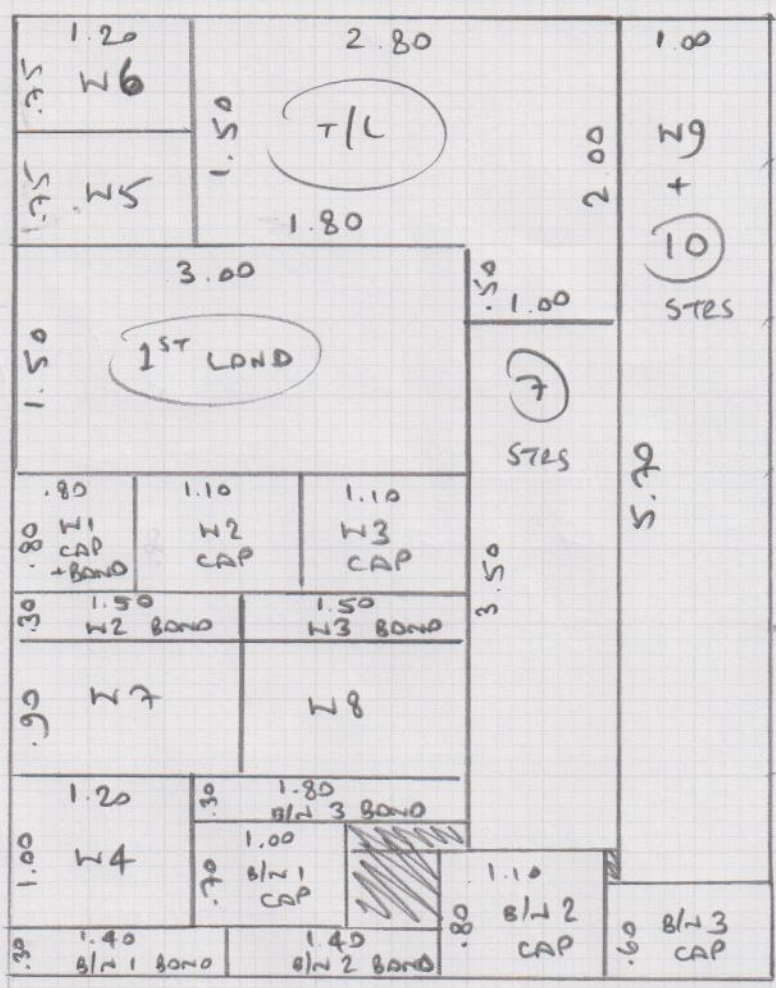 1.20
.75
W6
.75
W5
2.80
1.50
T/L
1.80
2.00
1.00
W9
+
10
STRS
5.70
3.00
1.50
1ST LAND
.50
1.00
7
STRS
3.50
.80
.80
W1
CAP
+BAND
1.10
W2
CAP
1.10
W3
CAP
.30
1.50
W2 BAND
1.50
W3 BAND
.90
W7
W8
1.20
1.00
W4
.30
1.80
B/W 3 BAND
1.00
.70
B/W 1
CAP
1.10
.80
B/W 2
CAP
.60
B/W 3
CAP
.30
1.40
B/W 1 BAND
1.40
B/W 2 BAND